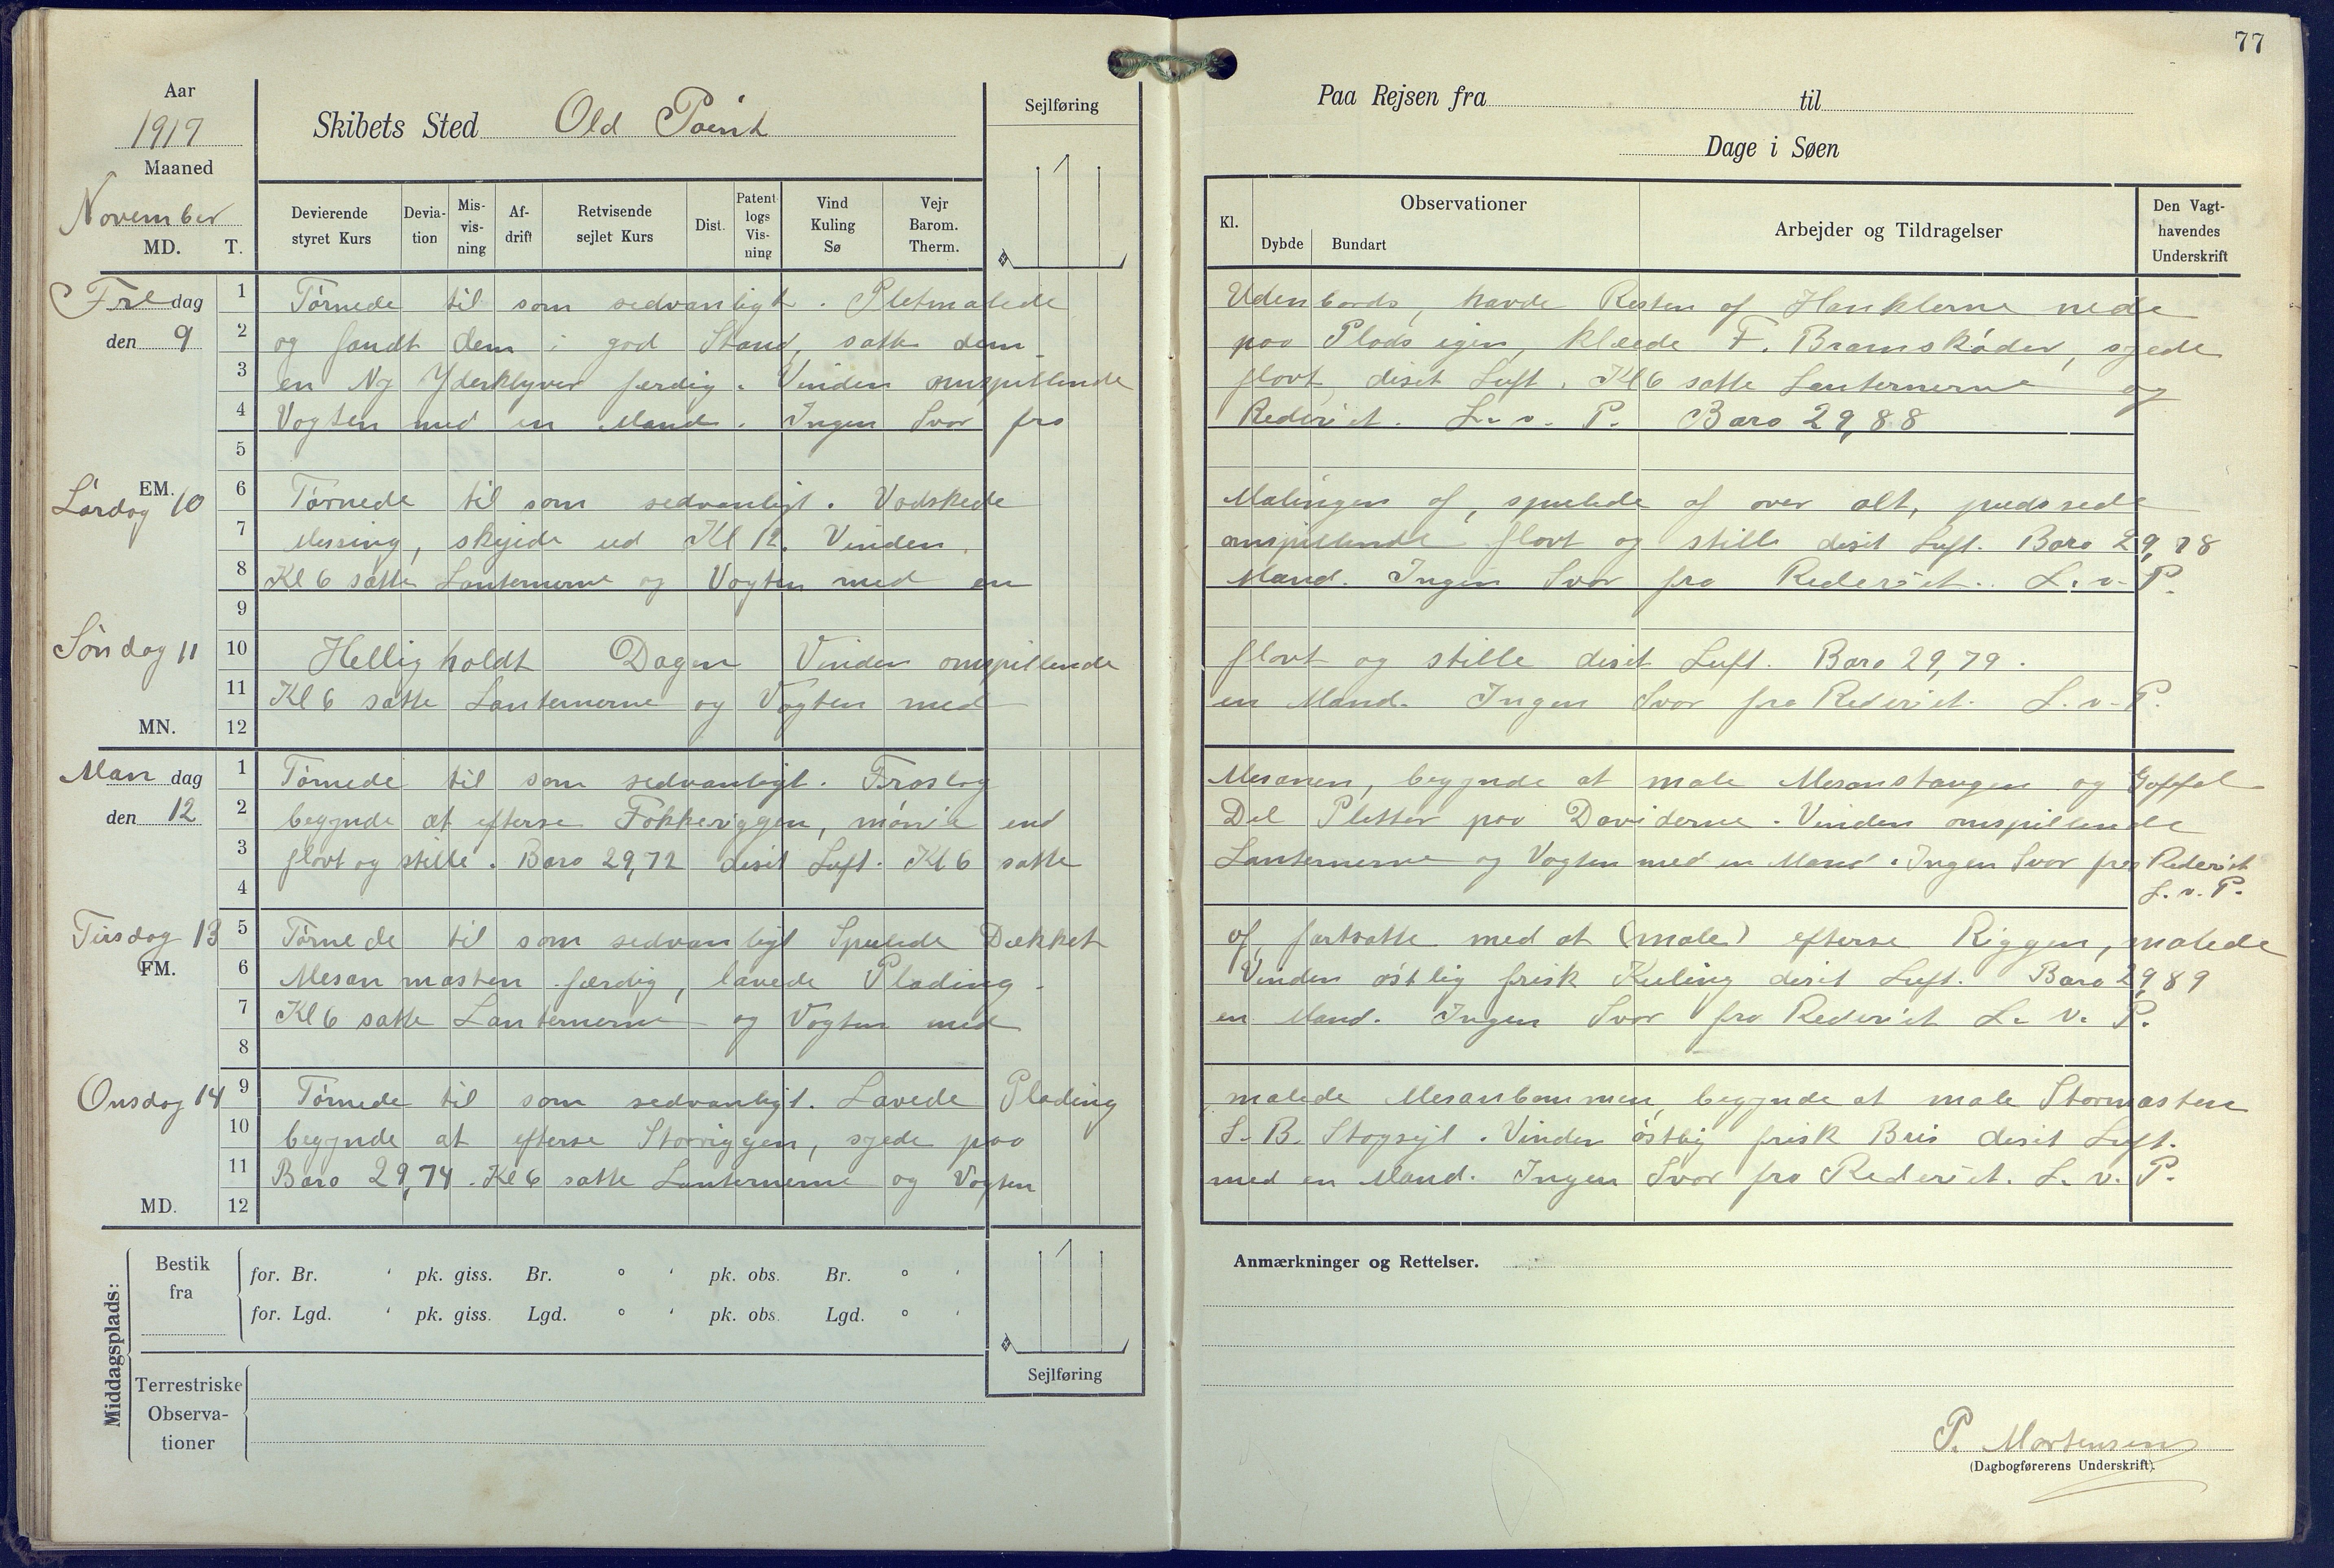 77
Aar
1917
Maaned
November
MD. T.
Skibets Sted Old Point
Sejlføring
Paa Rejsen fra til
Dage i Søen
Devierende styret Kurs
Devia-tion
Mis-vis-ning
Af-drift
Retvisende sejlet Kurs
Dist.
Patent logs Vis-ning
Vind Kuling Sø
Vejr Barom. Therm.
Kl.
Observationer
Dybde Bundart
Arbejder og Tildragelser
Den Vagt-havendes Underskrift
Fredag den 9
1 Törnede til som sedvanligt. Pletmalede Udenbords, havde Resten af Hanklerne nede
2 og fandt dem i god Stand, satte dem paa Plads igen, klæde F. Bramskøder, syede
3 en Ny Yderklyver færdig. Vinden omspillende flovt, diset Luft. Kl 6 satte Lanternerne og
4 Vagten med en Mand. Ingen Svar fra Rederiet. L. v. P. Baro 29,88
5
EM.
Lördag 10
6 Törnede til som sedvanligt. Vadskede Malingen af, spulede af over alt, pudssede
7 Messing, skejede ud Kl 12. Vinden omspillende flovt og stille diset Luft. Baro 29,78
8 Kl 6 satte Lanternerne og Vagten med en Mand. Ingen Svar fra Rederiet. L. v. P.
9
Söndag 11
10 Hellig holdt Dagen Vinden omspillende flovt og stille diset Luft. Baro 29,79.
11 Kl 6 satte Lanternerne og Vagten med en Mand. Ingen Svar fra Rederiet. L. v. P.
MN. 12
Mandag den 12
1 Törnede til som sedvanligt. Fraslog Mesanen, begynde at male Mesanstangen og Gaffel
2 begynde at efterse Fokkeriggen, mönie end Del Pletter paa Daviderne. Vinden omspillende
3 flovt og stille. Baro 29,72 diset Luft. Kl 6 satte Lanternerne og Vagten med en Mand. Ingen Svar fra Rederiet
4 L. v. P.
Tirsdag 13
5 Törnede til som sedvanligt Spulede Dækket af, fortsatte med at (male) efterse Riggen, malede
FM.
6 Mesanmasten færdig, lavede Plading. Vinden östlig frisk Kuling diset Luft. Baro 29,89
7 Kl 6 satte Lanternerne og Vagten med en Mand. Ingen Svar fra Rederiet L. v. P.
8
Onsdag 14
9 Törnede til som sedvanligt. Lavede Plading malede Mesanbommen, begynde at male Stormasten
10 begynde at efterse Storriggen, syede paa S. B. Stagsejl. Vinden östlig frisk Bris diset Luft.
11 Baro 29,74. Kl 6 satte Lanternerne og Vagten med en Mand. Ingen Svar fra Rederiet. L. v. P.
MD. 12
Middagsplads:
Bestik fra
for. Br. ' pk. giss. Br. ° ' pk. obs. Br. ° '
for. Lgd. ' pk. giss. Lgd. ° ' pk. obs. Lgd. ° '
Sejlføring
Terrestriske Observa-tioner
Anmærkninger og Rettelser.
P. Mortensen
(Dagbogførerens Underskrift).